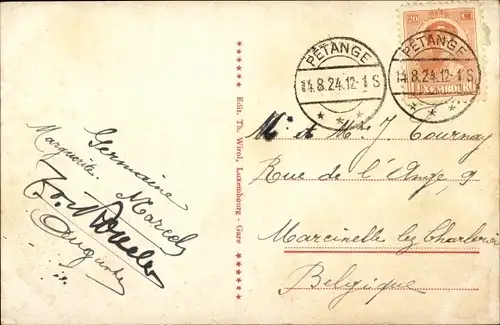 20 C
LUXEMBOURG
PETANGE
14.8.24.12-1 S
PETANGE
14.8.24.12-1 S
Edit. Th. Wirol, Luxembourg - Gare
Germaine
Marguerite. Marcel
Auguste
M. et M. J Tournay
Rue de l'Ange, 9
Marcinelle lez Charleroi
Belgique